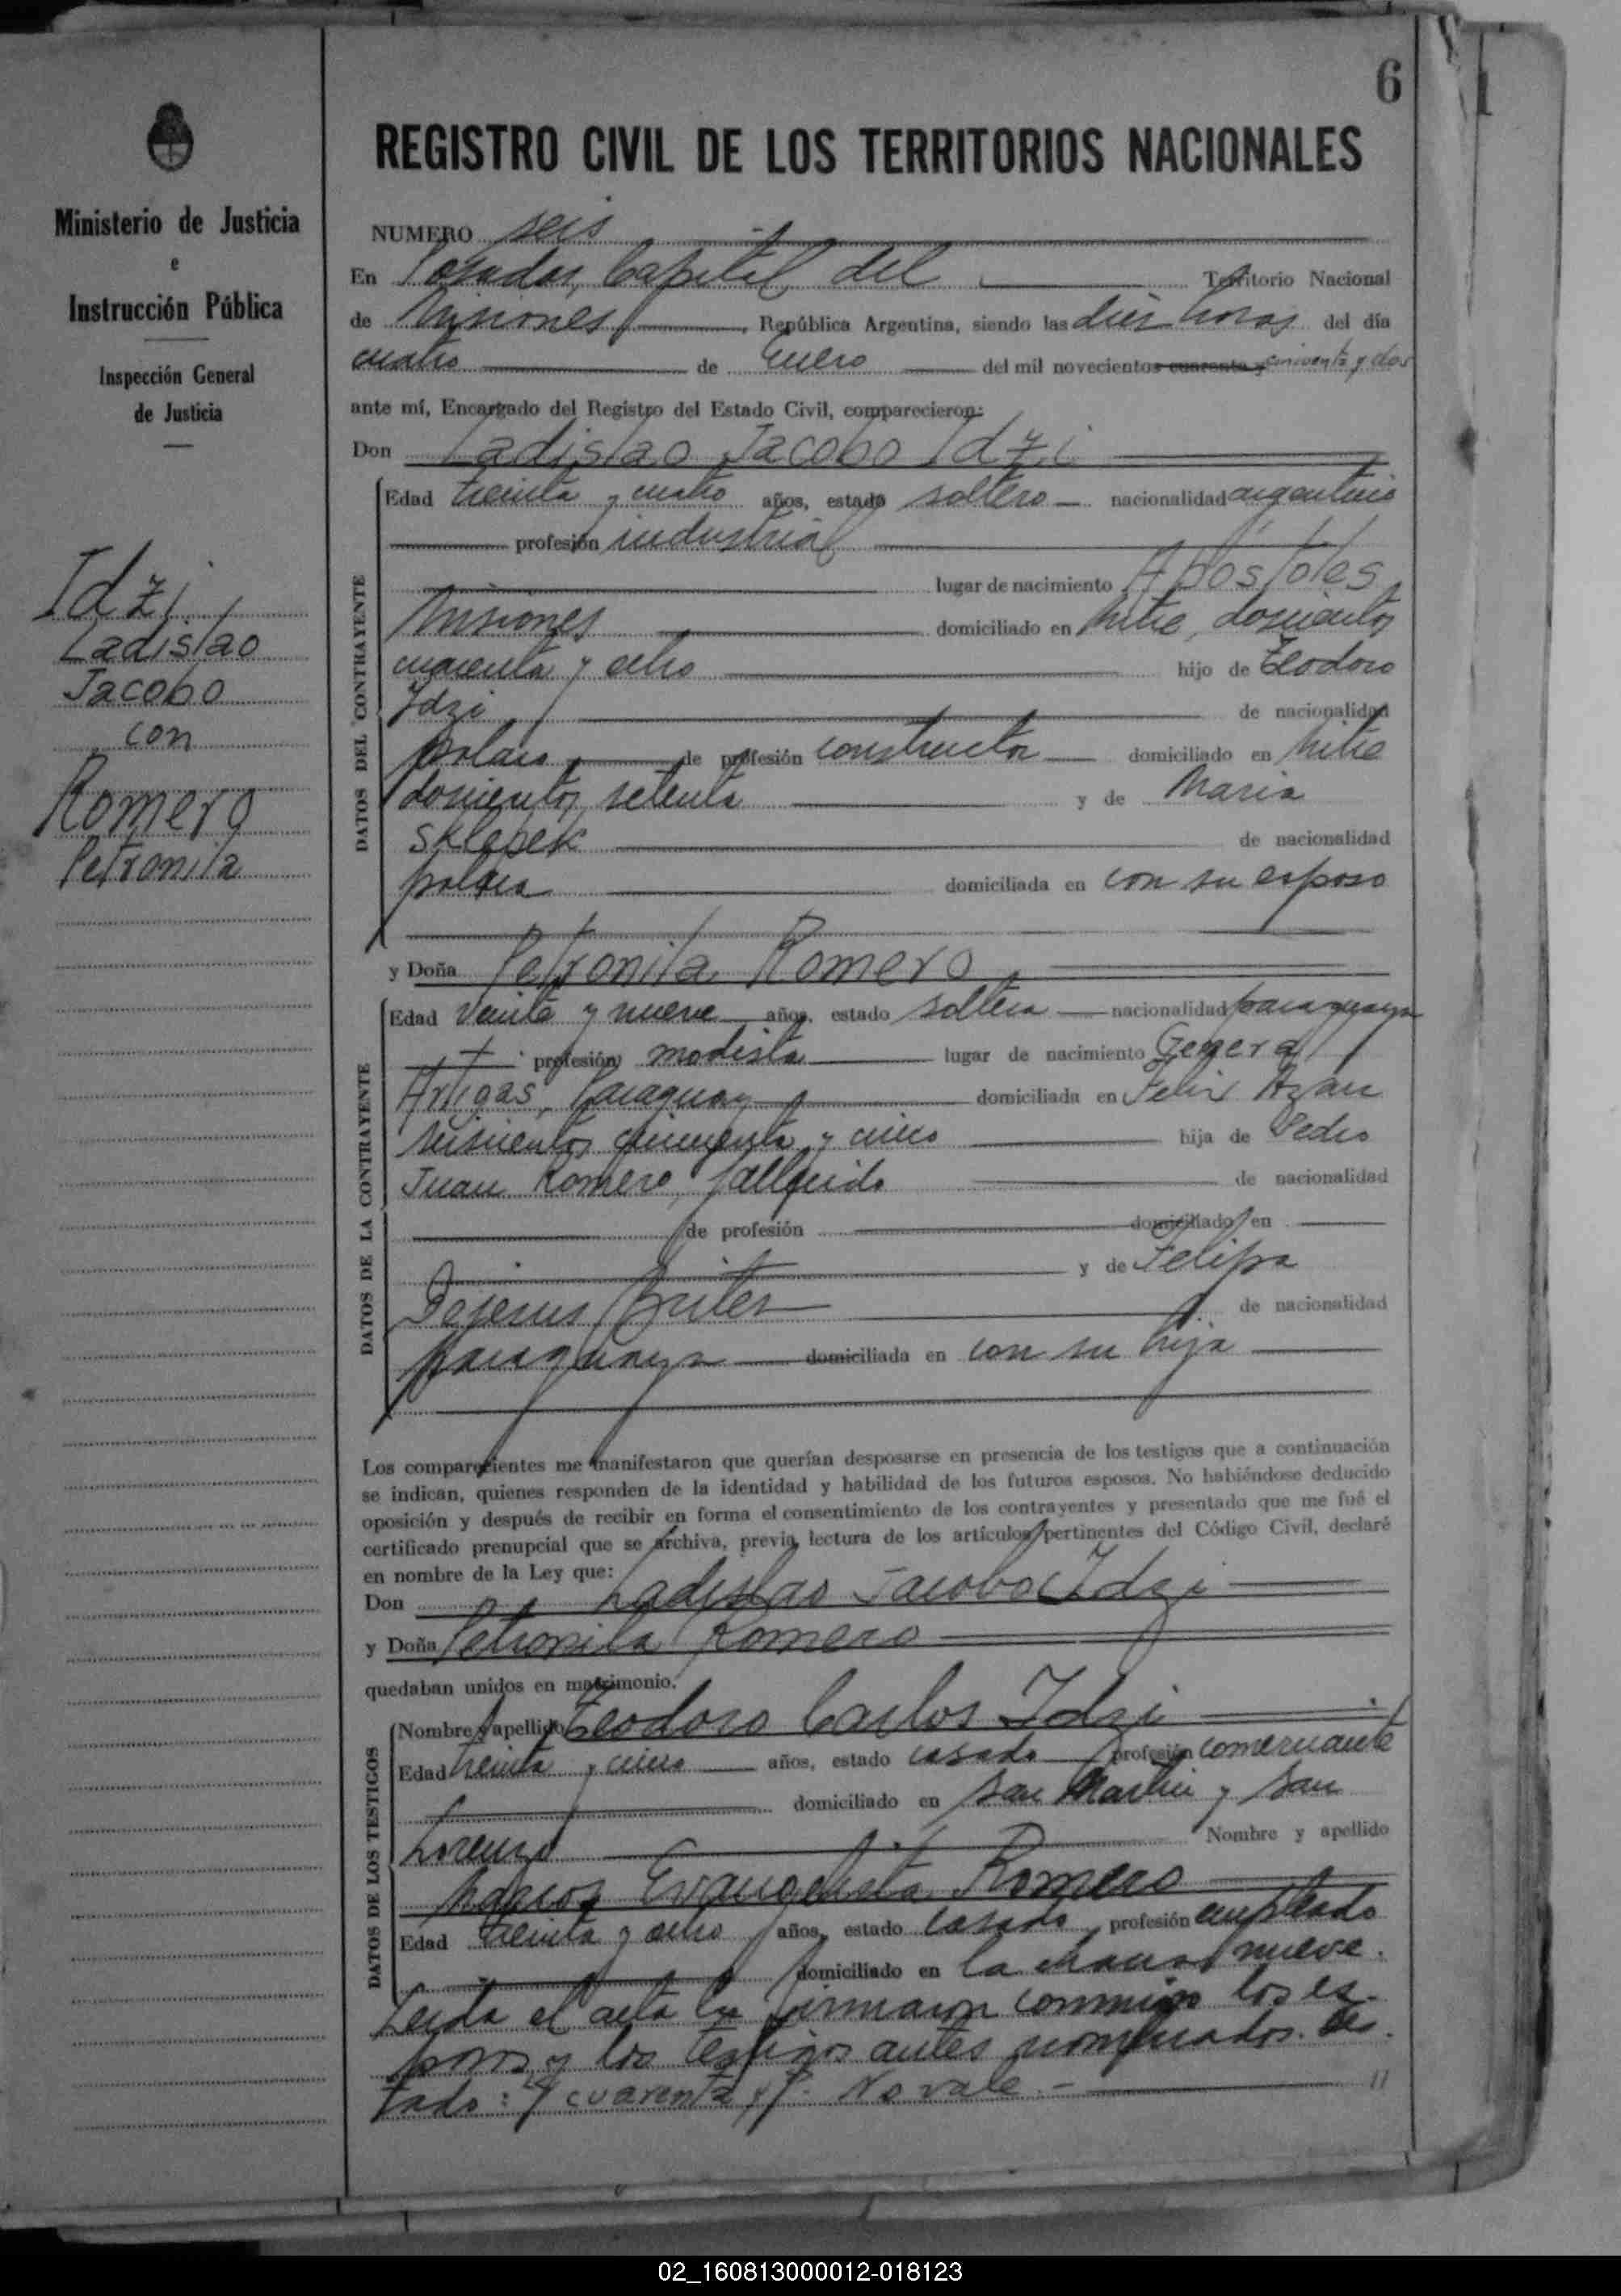 6
REGISTRO CIVIL DE LOS TERRITORIOS NACIONALES
Ministerio de Justicia
e
Instrucción Pública
Inspección General
de Justicia
Idzi
Ladislao
Jacobo
con
Romero
Petronila
NUMERO seis
En Posadas, Capital del Territorio Nacional
de Misiones, República Argentina, siendo las diez horas del día
cuatro de Enero del mil novecientos cuarenta y cincuenta y dos
ante mí, Encargado del Registro del Estado Civil, comparecieron:
Don Ladislao Jacobo Idzi
DATOS DEL CONTRAYENTE
Edad treinta y cuatro años, estado soltero nacionalidad argentino
profesión industrial
lugar de nacimiento Apóstoles,
Misiones domiciliado en Mitre, doscientos
cuarenta y ocho hijo de Teodoro
Idzi de nacionalidad
polaco de profesión constructor domiciliado en Mitre
doscientos setenta y de Maria
Sklepek de nacionalidad
polaca domiciliada en con su esposo
y Doña Petronila Romero
DATOS DE LA CONTRAYENTE
Edad veinte y nueve años, estado soltera nacionalidad paraguaya
profesión modista lugar de nacimiento General
Artigas, Paraguay domiciliada en Felix Azara
seiscientos cincuenta y cinco hija de Pedro
Juan Romero, fallecido de nacionalidad
de profesión domiciliado en
y de Felipa
Dejesus Britez de nacionalidad
paraguaya domiciliada en con su hija
Los comparecientes me manifestaron que querían desposarse en presencia de los testigos que a continuación
se indican, quienes responden de la identidad y habilidad de los futuros esposos. No habiéndose deducido
oposición y después de recibir en forma el consentimiento de los contrayentes y presentado que me fué el
certificado prenupcial que se archiva, previa lectura de los artículos pertinentes del Código Civil, declaré
en nombre de la Ley que:
Don Ladislao Jacobo Idzi
y Doña Petronila Romero
quedaban unidos en matrimonio.
DATOS DE LOS TESTIGOS
Nombre y apellido Teodoro Carlos Idzi
Edad treinta y cinco años, estado casado profesión comerciante
domiciliado en San Martin y San
Lorenzo Nombre y apellido
Marcos Evangelista Romero
Edad treinta y ocho años, estado casado profesión empleado
domiciliado en la chacra nueve.
Leida el acta la firmaron conmigo los es-
posos y los testigos antes nombrados. Tes-
tado: "cuarenta y". No vale.-
02_160813000012-018123